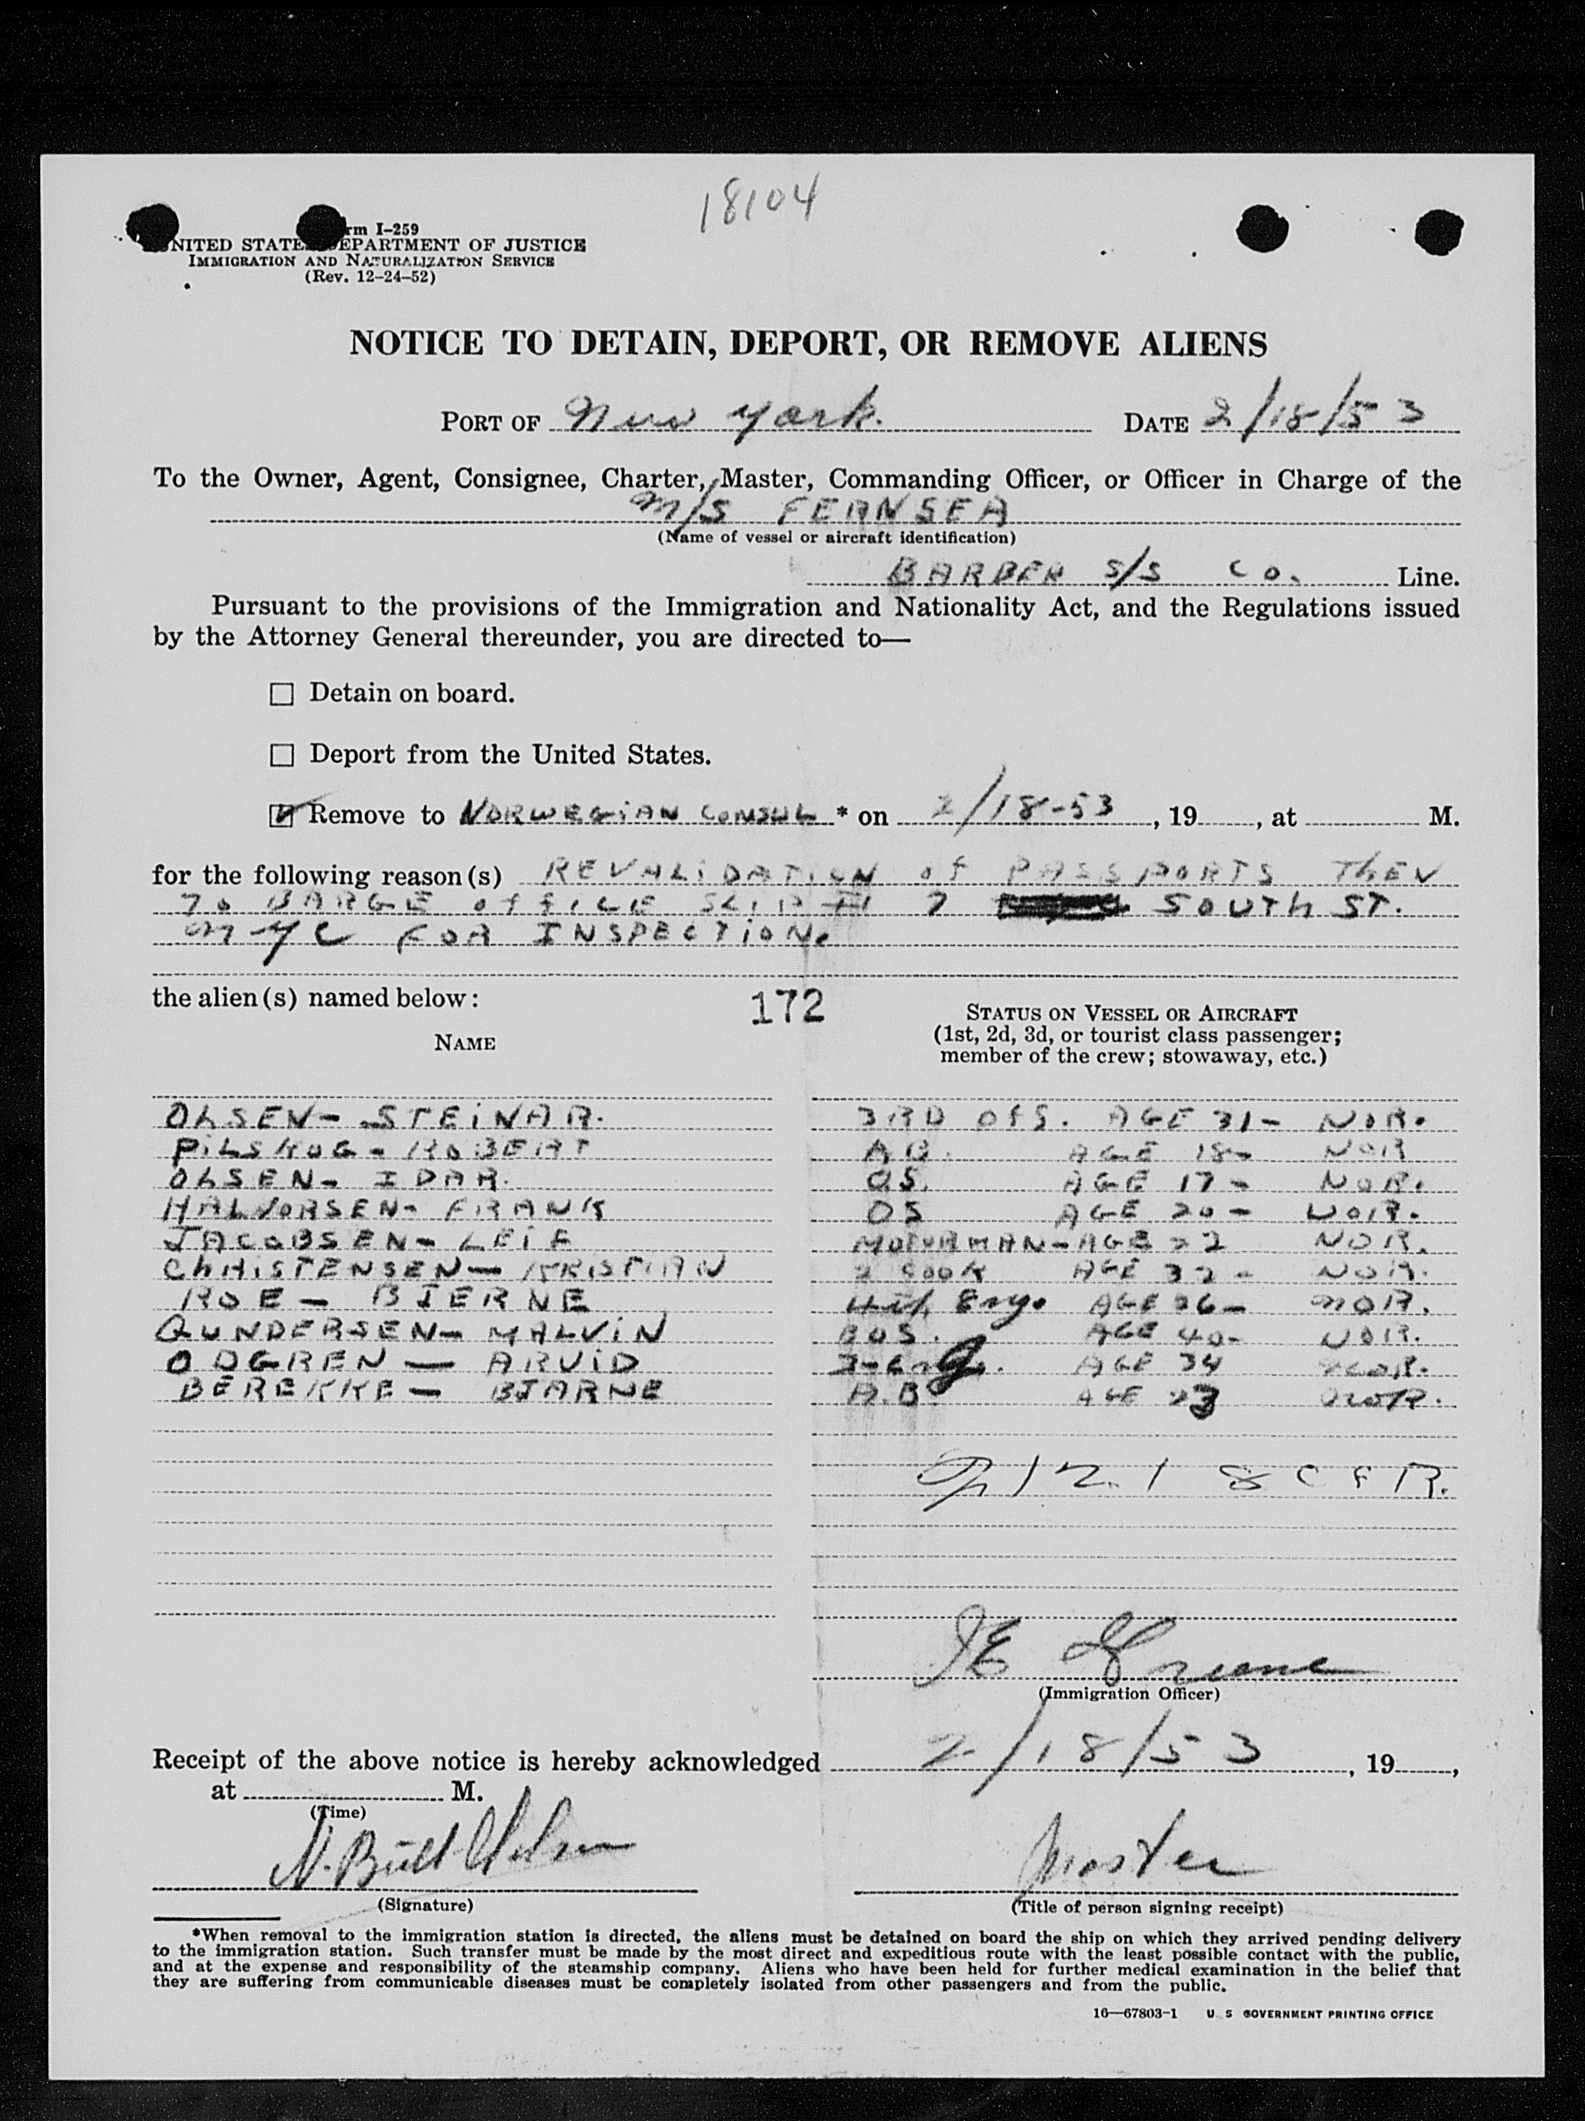 18104
Form I-259
UNITED STATES DEPARTMENT OF JUSTICE
IMMIGRATION AND NATURALIZATION SERVICE
(Rev. 12-24-52)
NOTICE TO DETAIN, DEPORT, OR REMOVE ALIENS
PORT OF New York. DATE 2/18/53
To the Owner, Agent, Consignee, Charter, Master, Commanding Officer, or Officer in Charge of the
M/S FERNSEA
(Name of vessel or aircraft identification)
BARBER S/S CO. Line.
Pursuant to the provisions of the Immigration and Nationality Act, and the Regulations issued
by the Attorney General thereunder, you are directed to—
☐ Detain on board.
☐ Deport from the United States.
☑ Remove to NORWEGIAN CONSUL * on 2/18-53, 19, at M.
for the following reason(s) REVALIDATION of PASSPORTS THEN
TO BARGE OFFICE SLIP # 7 SOUTH ST.
NYC FOR INSPECTION.
the alien(s) named below:
172
STATUS ON VESSEL OR AIRCRAFT
(1st, 2d, 3d, or tourist class passenger;
member of the crew; stowaway, etc.)
NAME
OLSEN- STEINAR. 3RD OFS. AGE 31- NOR.
PILSKOG- ROBERT AB. AGE 18- NOR
OLSEN- IDAR. OS. AGE 17- NOR.
HALVORSEN- FRANK OS AGE 20- NOR.
JACOBSEN- LEIF MOTORMAN-AGE 22 NOR.
CHRISTENSEN- KRISTIAN 2 COOK AGE 32- NOR.
ROE- BJERNE Engr AGE 26- NOR.
GUNDERSEN- MALVIN BOS. AGE 40- NOR.
ODGREN- ARVID AGE 34 NOR.
BEREKKE- BJARNE A.B. AGE 23 NOR.
212.1 8 CFR.
JE Greene
(Immigration Officer)
Receipt of the above notice is hereby acknowledged 2/18/53, 19,
at M.
(Time)
N. Bull
Master
(Signature)
(Title of person signing receipt)
*When removal to the immigration station is directed, the aliens must be detained on board the ship on which they arrived pending delivery
to the immigration station. Such transfer must be made by the most direct and expeditious route with the least possible contact with the public,
and at the expense and responsibility of the steamship company. Aliens who have been held for further medical examination in the belief that
they are suffering from communicable diseases must be completely isolated from other passengers and from the public.
16—67803-1 U S GOVERNMENT PRINTING OFFICE